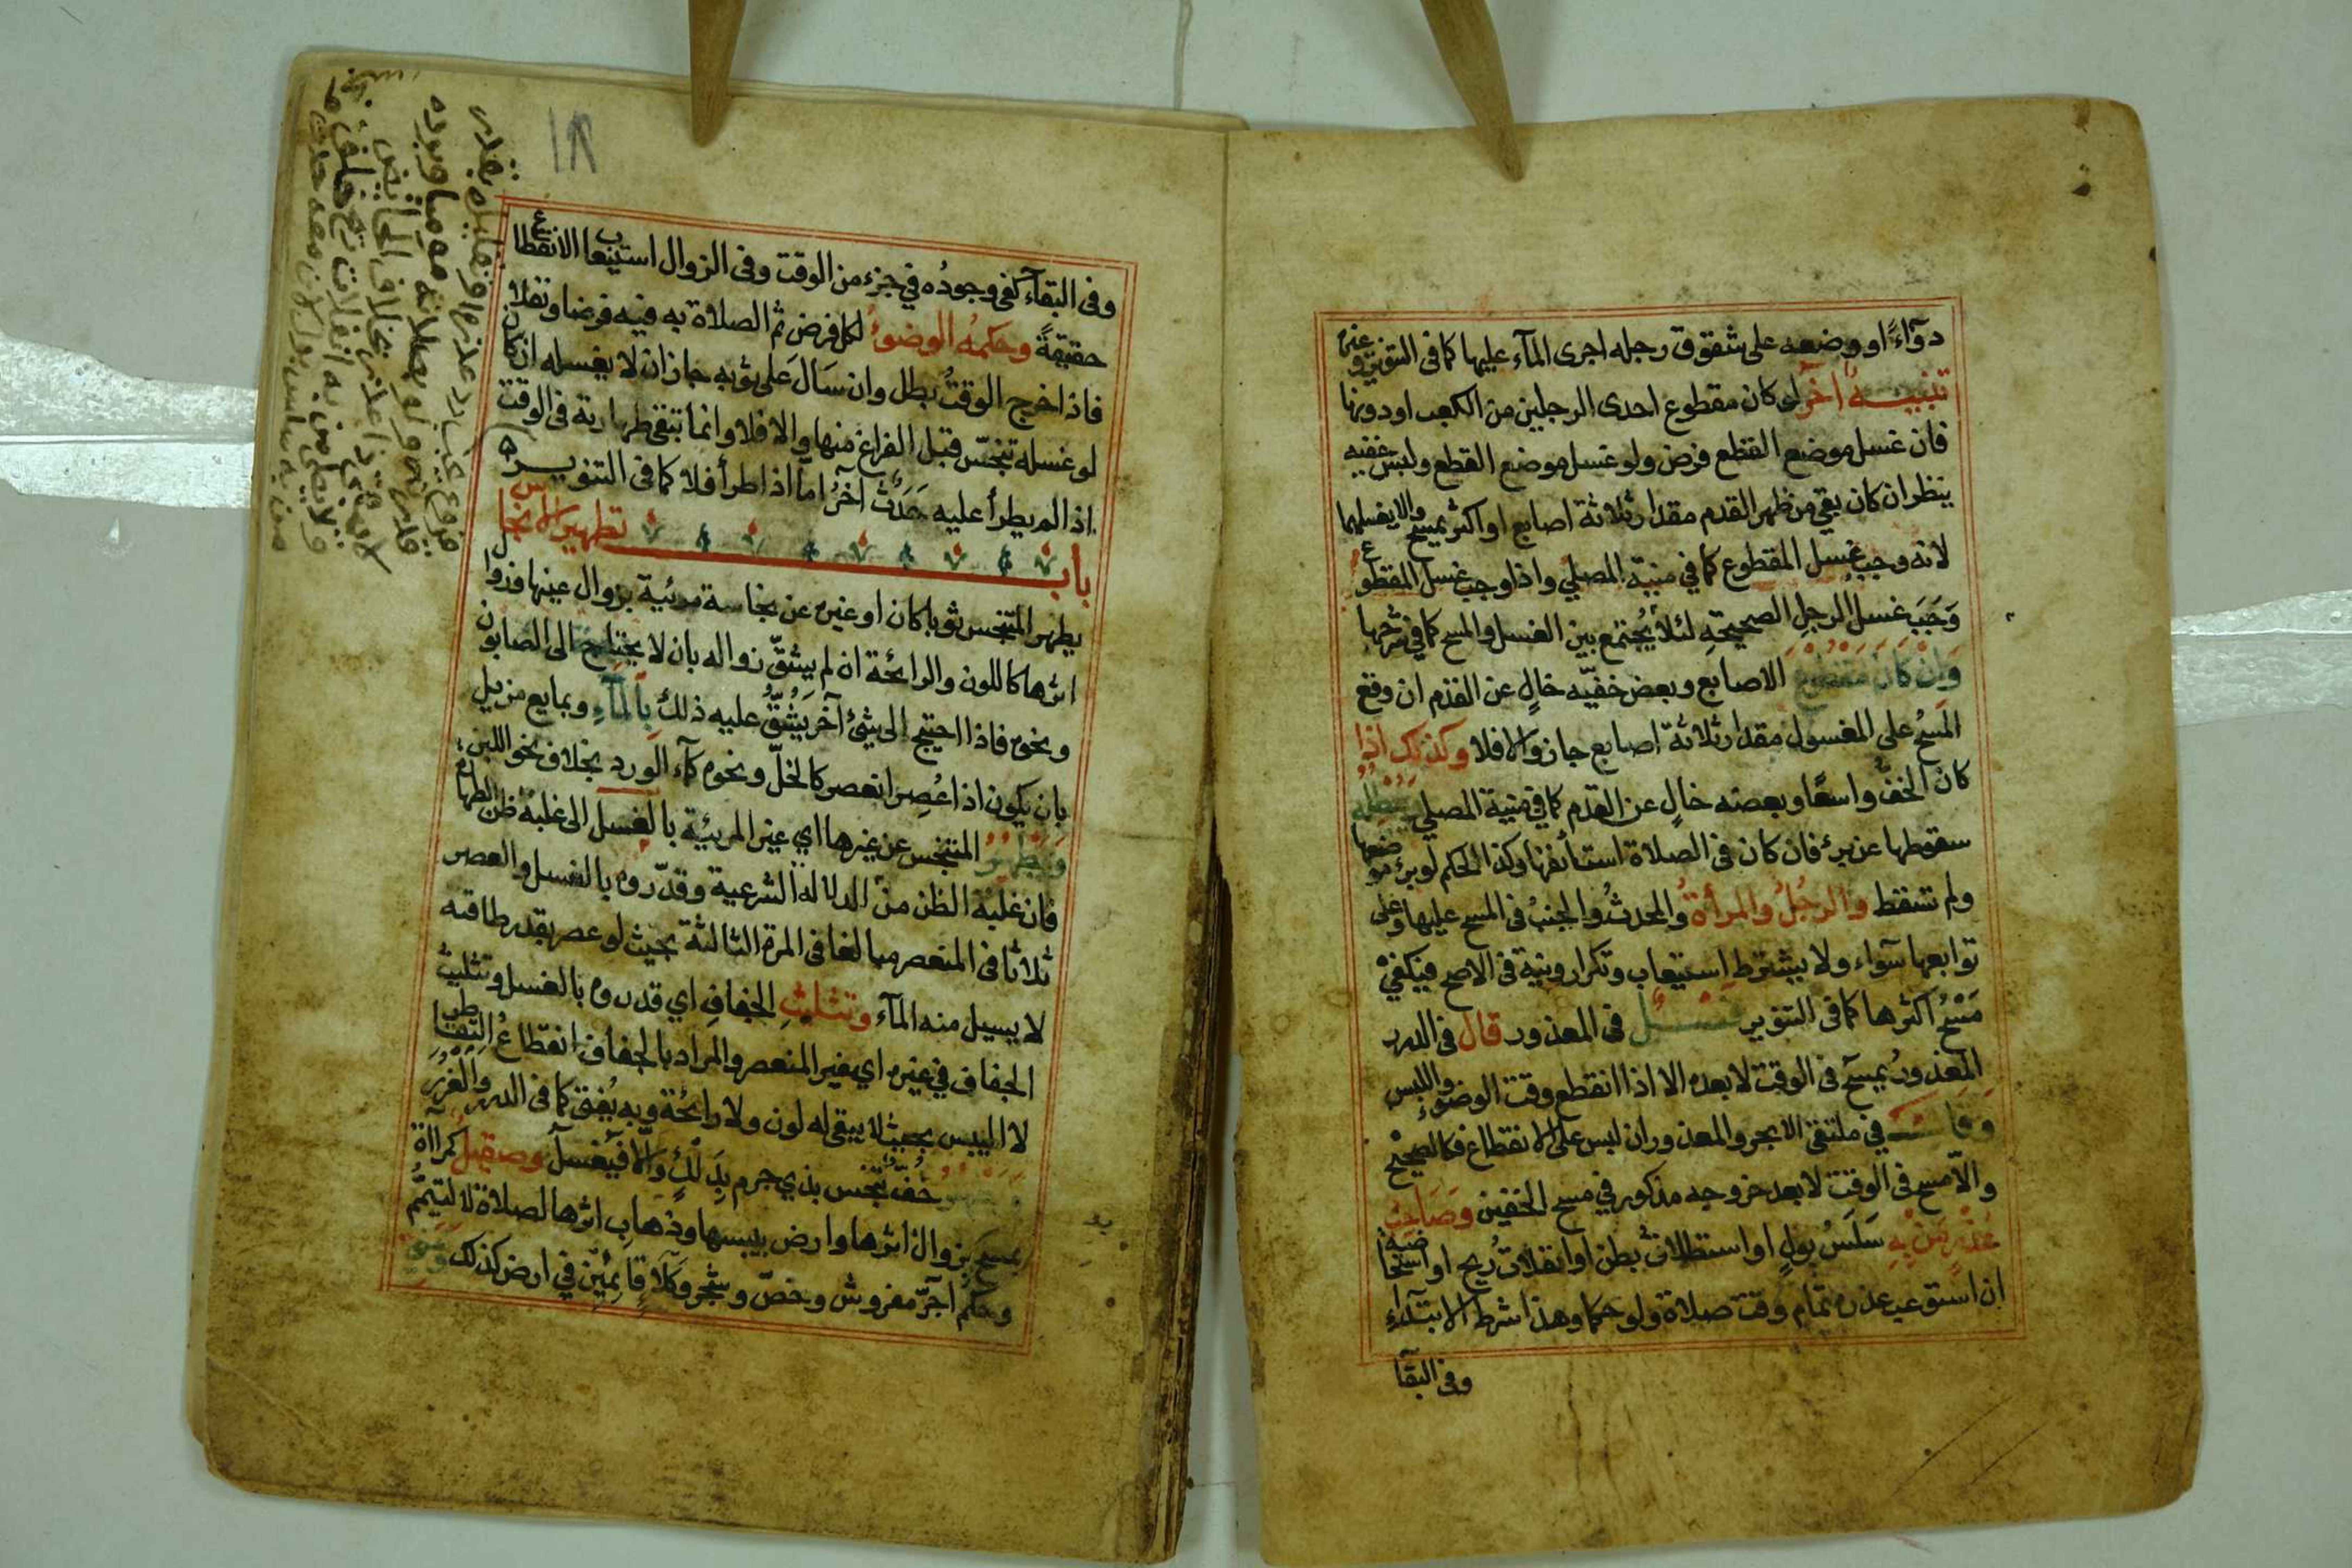 دوآءً او وضعه على شقوق رجله اجرى المآء عليها كما فى التنوير وغيره
تنبيه آخر لو كان مقطوع احدى الرجلين من الكعب او دونها
فان غسل موضع القطع فرض ولو غسل موضع القطع ولبس خفيه
ينظر ان كان بقي من ظهر القدم مقدار ثلاثة اصابع او اكثر يمسح والا يغسلهما
لانه وجب غسل المقطوع كما في منية المصلي واذا وجب غسل المقطوع
وَجَبَ غسل الرجلِ الصحيحةِ لئلا يُجتمع بين الغسل والمسح كما في شرحها
وَاِنْ كَانَ مَقْطُوعَ الاصابع وبعض خفيّه خالٍ عن القدم ان وقع
المَسحُ على المغسول مقدار ثلاثة اصابع جاز والا فلا وكذلك اذا
كان الخفُّ واسعًا وبعضه خالٍ عن القدم كما فى منية المصلي يبطله
سقوطها عن برءٍ فان كان فى الصلاة استأنفها وكذا الحكم لو برئ موضعها
ولم تسقط والرجُلُ والمرأةُ والمحدثُ والجنبُ فى المسح عليها وعلى
توابعها سوآء ولا يشترط استيعاب وتكرار ونية فى الاصح فيكفيْ
مَسْحُ اكثرها كما فى التنوير فصل فى المعذور قال فى الدرر
المعذورُ يمسح فى الوقت لا بعده الا اذا انقطع وقت الوضوء واللبس
وقال في ملتقى الابحر والمعذور ان لبس على الانقطاع فكالصحيح
والاّ مسح فى الوقت لا بعد خروجه مذكور في مسح الخفين وصَاحِبُ
عُذْرٍ مَنْ بِهِ سَلَسُ بولٍ او استطلاقُ بطن او انفلاتُ ريح او استحاضة
ان استوعب عذره تمام وقت صلاة ولو حكما وهذا شرط الابتدآءِ
وفى البقآ
١٨
وفى البقآء كفى وجودُه في جزء من الوقت وفى الزوال استيعاب الانقطاع
حقيقةً وحكمُه الوضوءُ لكل فرض ثم الصلاة به فيه فرضا ونفلا
فاذا خرج الوقتُ بطل وان سَالَ على ثوبه جاز ان لا يغسله ان كان
لو غسله تنجّس قبل الفراغ منها والا فلا وانما تبقى طهارته فى الوقت
اذا لم يطرأ عليه حَدَثٌ آخرُ اما اذا طرأ فلا كما فى التنوير
باب تطهير الانجاس
يطهر المتنجس ثوبا كان او غيره عن نجاسة مرئية بزوال عينها وزوال
اثرها كاللون والرائحة ان لم يشقّ زواله بان لا يحتاج الى الصابون
ونحوه فاذا احتيج الى شئ آخر يَشُقُّ عليه ذلك بِالمآءِ وبمايع مزيل
بان يكون اذا عُصِرَ انعصر كالخلّ ونحوه كمآء الورد بخلاف نحو اللبن
وَيَطْهُرُ المتنجس عن غيرها اي غير المرئية بالغسل الى غلبة ظن الطهارة
فان غلبة الظن من الدلالة الشرعية وقدّروه بالغسل والعصر
ثلاثا فى المنعصر مبالغا فى المرة الثالثة بحيث لو عصر بقدر طاقته
لا يسيل منه المآء وتثليثِ الجفافِ اي قدروه بالغسل وتثليث
الجفاف في غيره اي غير المنعصر والمراد بالجفاف انقطاعُ التقاطر
لا اليبس بحيث لا يبقى له لون ولا رائحة وبه يُفتى كما فى الدرر والغُرَر
خُفّ تنجّس بذي جرم بِدَلْكٍ والاّ فيغسل وصقيل كمرآة
بمسحٍ يزوال اثرها وارض بيبسها وذهاب اثرها لصلاة لا لتيمّم
وحكم آجرّ مفروش وخصّ وشجر وكَلأٍ قائمَيْن في ارض كذلك